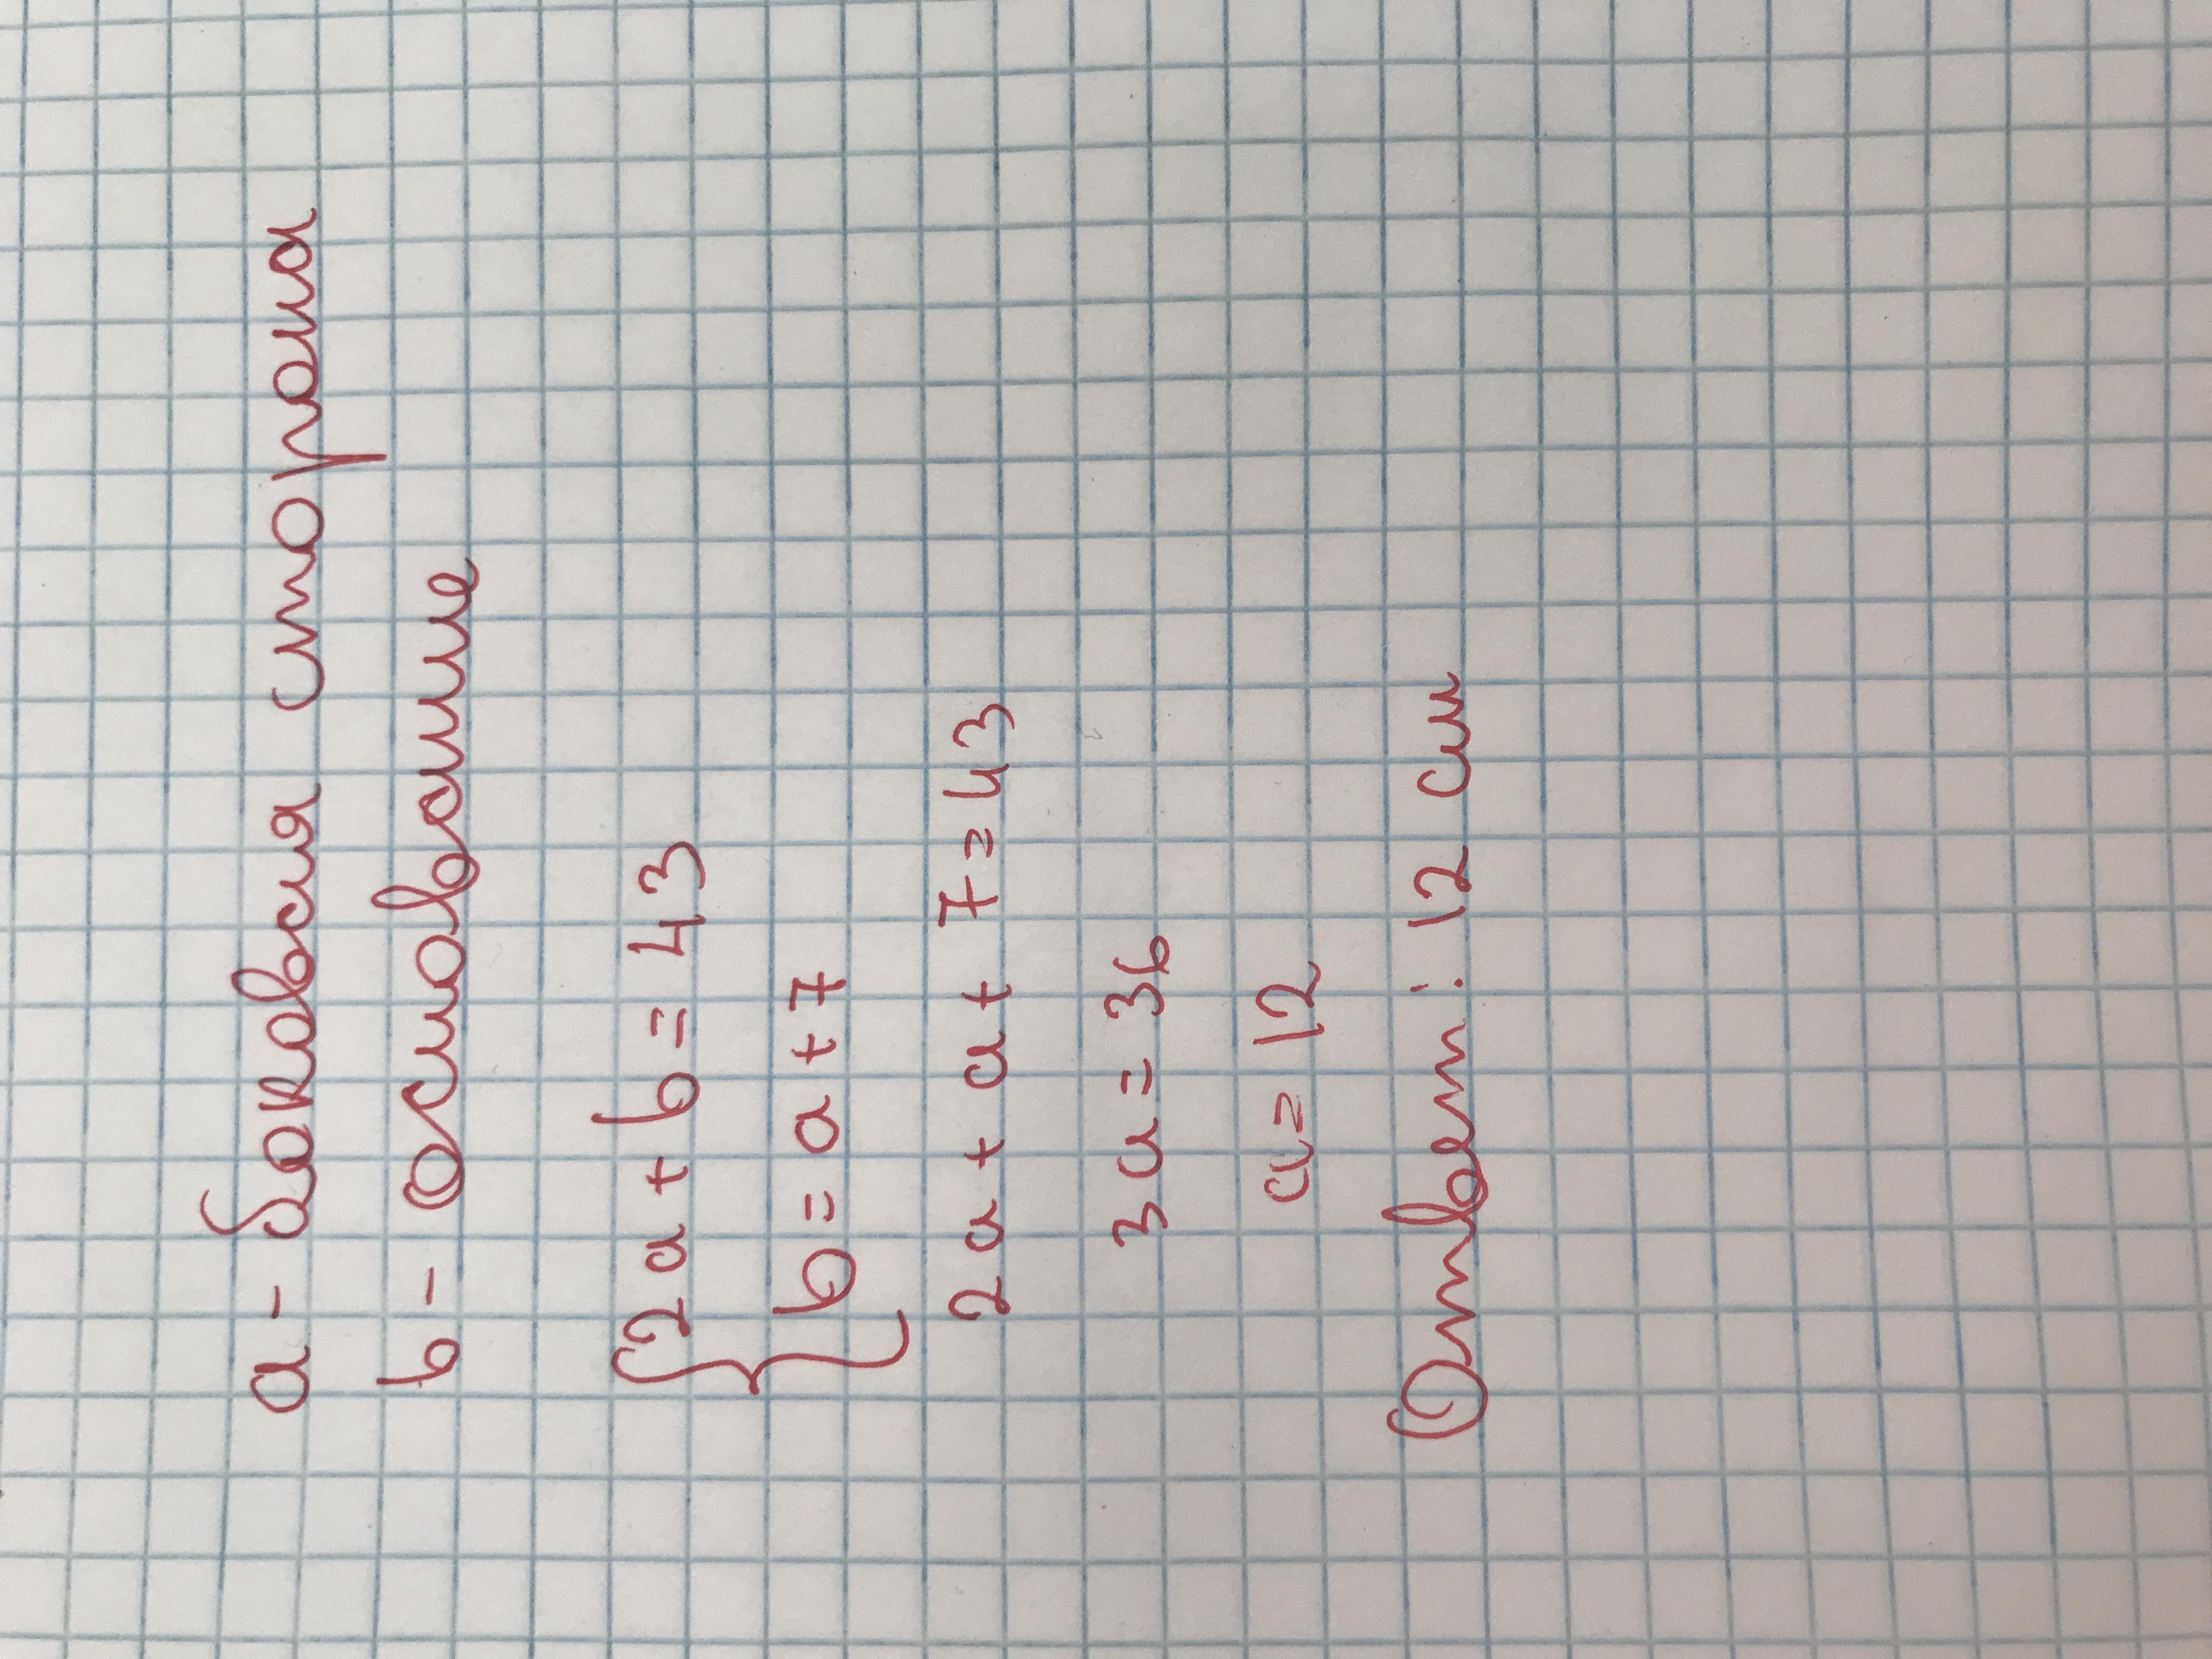 a - боковая сторона
b - основание
{ 2a + b = 43
b = a + 7
2a + a + 7 = 43
3a = 36
a = 12
Ответ: 12 см